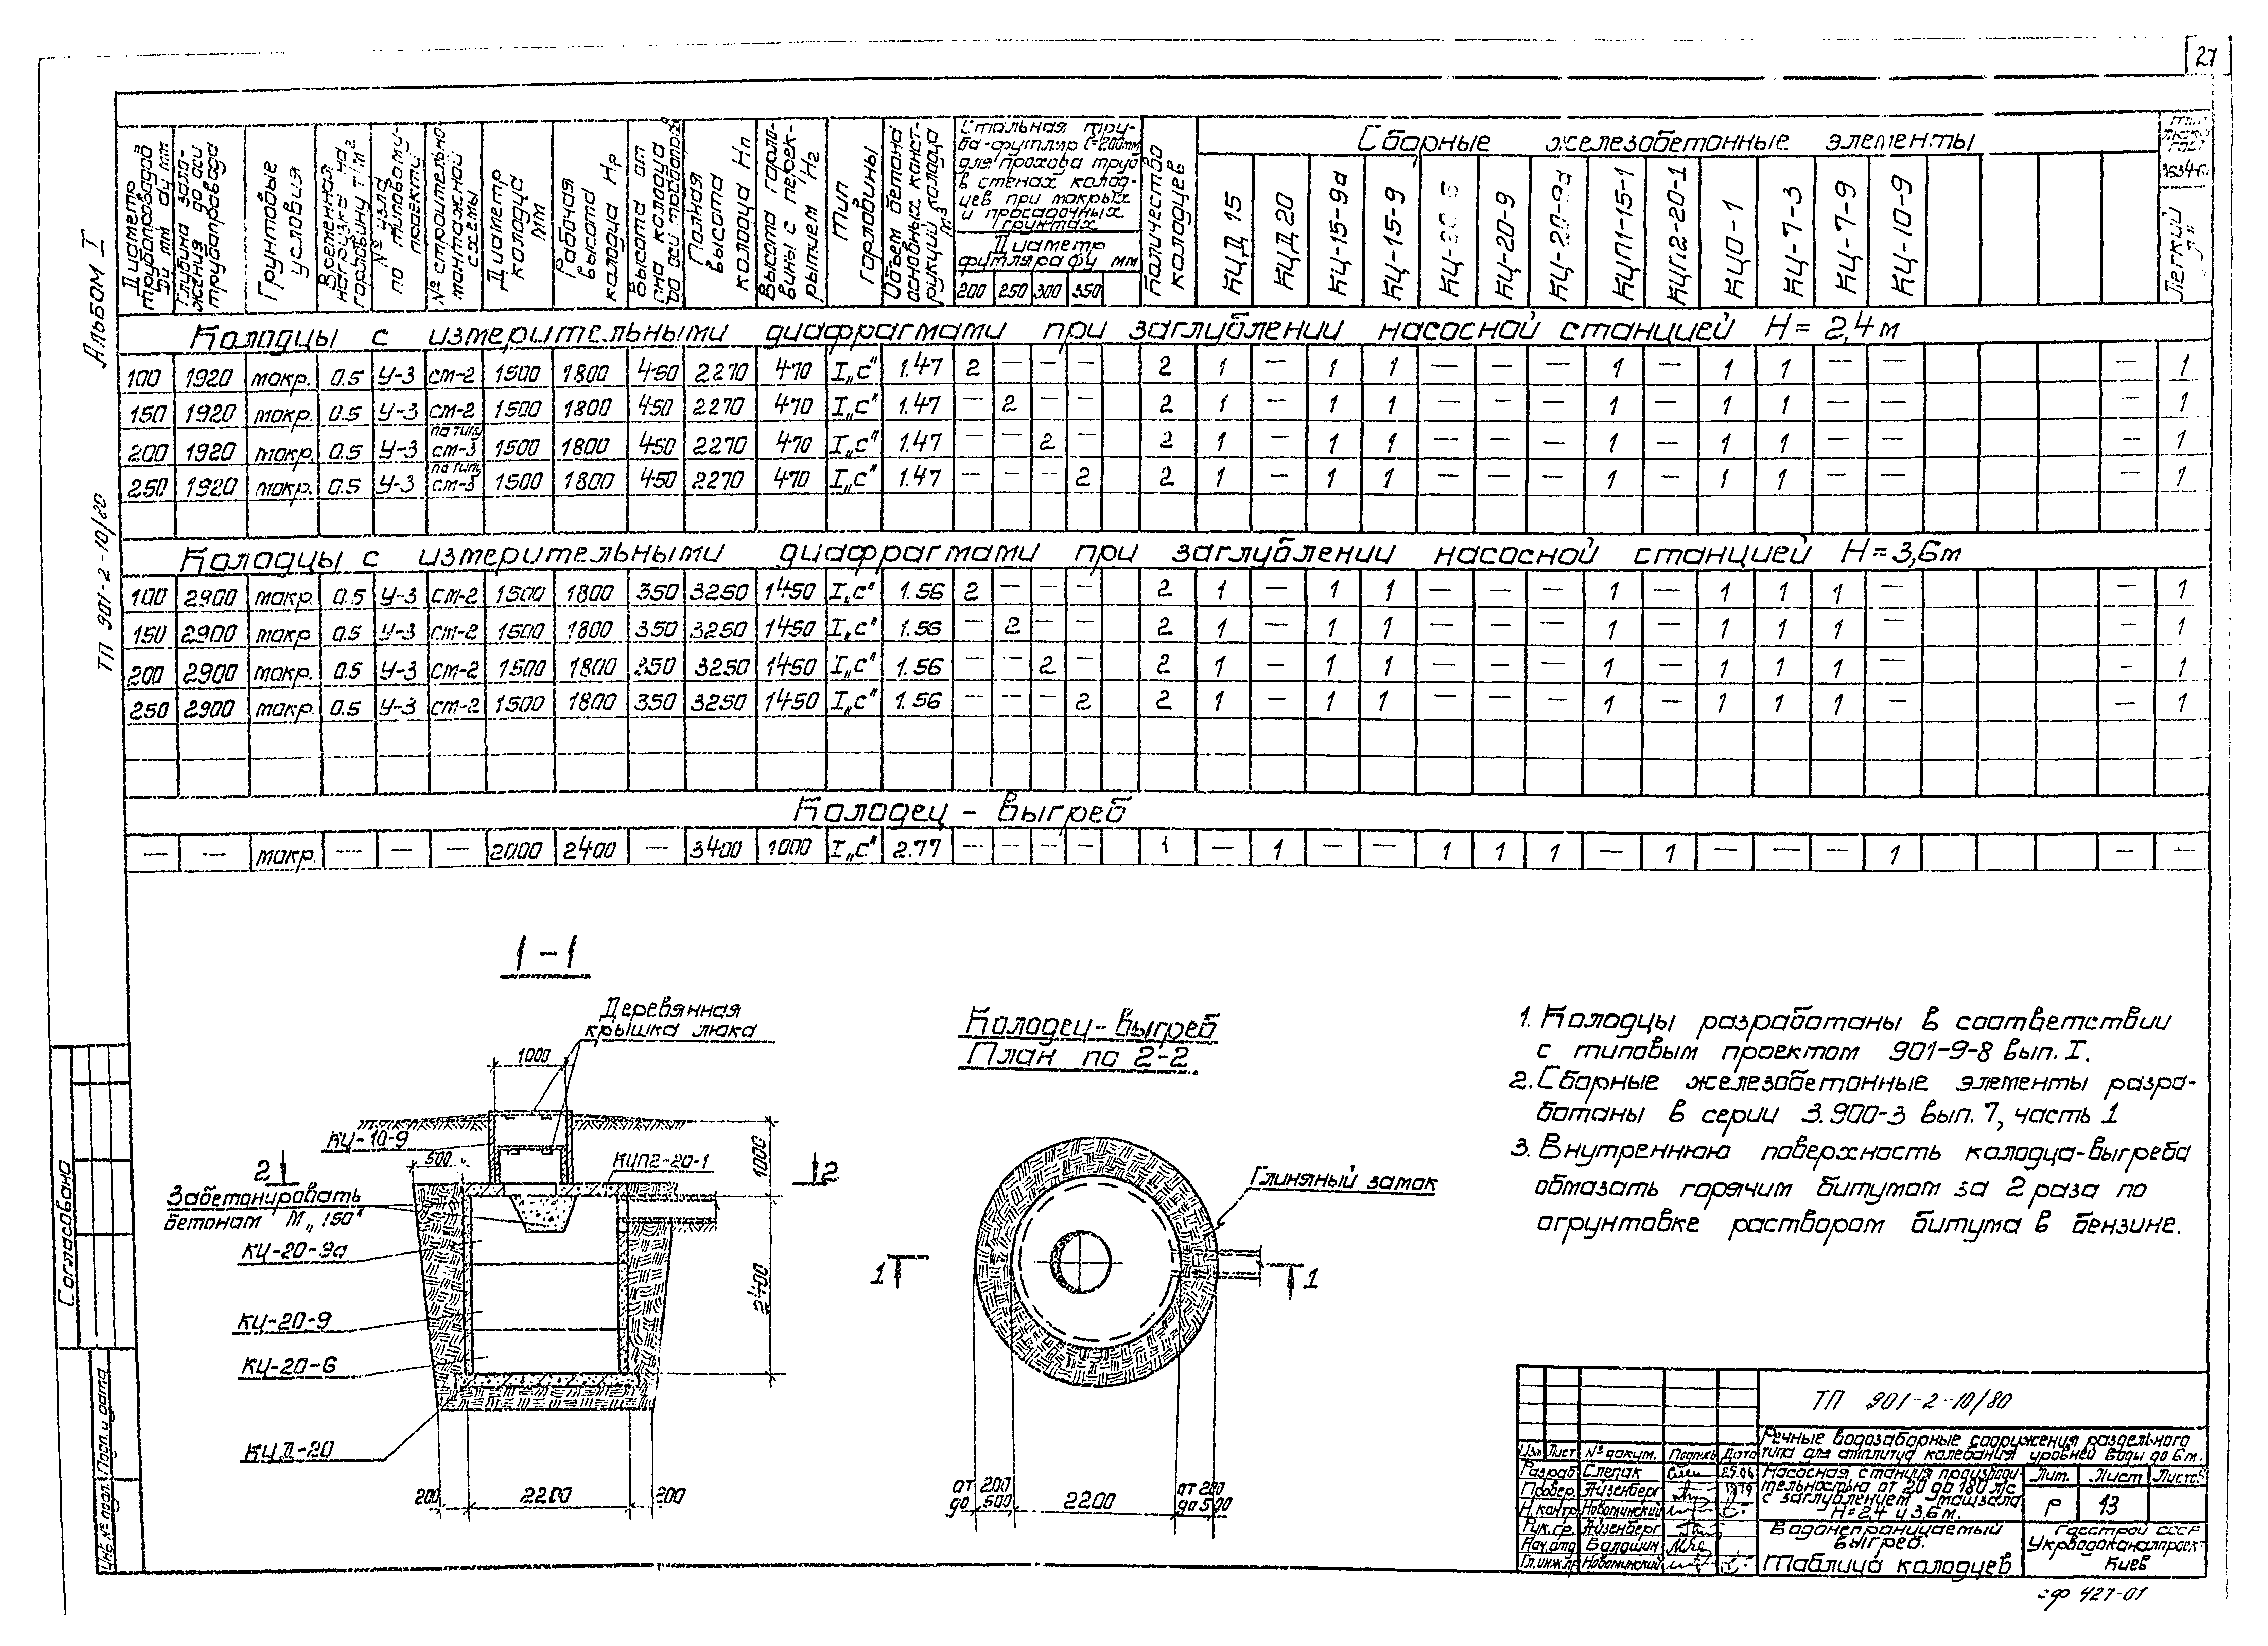 27
Альбом I
ТП 901-2-10/80
Диаметр трубопроводов Ду мм
Глубина заложения до оси трубопровода
Грунтовые условия
Временная нагрузка на горловину т/м²
№ узла по типовому проекту
№ строительно монтажной схемы
Диаметр колодца мм
Рабочая высота колодца Нр
Высота от дна колодца до оси трубопровода
Полная высота колодца Нп
Высота горловины с перекрытием Нг
Тип горловины
Объем бетана основных конструкций колодца м3
Стальная тру-
ба-футляр ℓ=200мм
для прохода труб
в стенах колод-
цев при мокрых
и просадочных
грунтах
Диаметр
футляра фу мм
200 250 300 350
Количество колодцев
Сборные железобетонные элементы
КЦД 15 КЦД 20 КЦ-15-9а КЦ-15-9 КЦ-20-9 КЦ-20-9а КЦП1-15-1 КЦП2-20-1 КЦО-1 КЦ-7-3 КЦ-7-9 КЦ-10-9
Легкий „Л"
Колодцы с измерительными диафрагмами при заглублении насосной станцией Н= 2,4м
100 1920 мокр. 0.5 У-3 см-2 1500 1800 450 2270 470 I„с" 1.47 2 — — — 2 1 — 1 1 — — — 1 — 1 1 — — — 1
150 1920 мокр. 0.5 У-3 см-2 1500 1800 450 2270 470 I„с" 1.47 — 2 — — 2 1 — 1 1 — — — 1 — 1 1 — — — 1
200 1920 мокр. 0.5 У-3 по типу см-3 1500 1800 450 2270 470 I„с" 1.47 — — 2 — 2 1 — 1 1 — — — 1 — 1 1 — — — 1
250 1920 мокр. 0.5 У-3 по типу см-3 1500 1800 450 2270 470 I„с" 1.47 — — — 2 2 1 — 1 1 — — — 1 — 1 1 — — — 1
Колодцы с измерительными диафрагмами при заглублении насосной станцией Н=3,6м
100 2900 мокр. 0.5 У-3 см-2 1500 1800 350 3250 1450 I„с" 1.56 2 — — — 2 1 — 1 1 — — — 1 — 1 1 1 — — 1
150 2900 мокр. 0.5 У-3 см-2 1500 1800 350 3250 1450 I„с" 1.56 — 2 — — 2 1 — 1 1 — — — 1 — 1 1 1 — — 1
200 2900 мокр. 0.5 У-3 см-2 1500 1800 350 3250 1450 I„с" 1.56 — — 2 — 2 1 — 1 1 — — — 1 — 1 1 1 — — 1
250 2900 мокр. 0.5 У-3 см-2 1500 1800 350 3250 1450 I„с" 1.56 — — — 2 2 1 — 1 1 — — — 1 — 1 1 1 — — 1
Колодец - выгреб
— — мокр. — — — 2000 2400 — 3400 1000 I„с" 2.77 — — — — 1 — 1 — — 1 1 1 — 1 — — — 1 — —
1-1
Деревянная
крышка люка
1000
КЦ-10-9
500
2
КЦП2-20-1
2
1000
Забетонировать
бетоном М„150"
КЦ-20-9а
2400
КЦ-20-9
КЦ-20-6
КЦД-20
200 2200 200
Колодец-выгреб
План по 2-2
Глиняный замок
1 1
от 200
до 500
2200
от 200
до 500
1. Колодцы разработаны в соответствии
с типовым проектом 901-9-8 вып. I.
2. Сборные железобетонные элементы разра-
ботаны в серии 3.900-3 вып. 7, часть 1
3. Внутреннюю поверхность колодца-выгреба
обмазать горячим битумом за 2 раза по
огрунтовке раствором битума в бензине.
Согласовано
Подп. и дата
Инв. № подл.
ТП 901-2-10/80
Речные водозаборные сооружения раздельного
типа для амплитуд колебания уровней воды до 6м.
Изм Лист № докум. Подпись Дата
Разраб Слепак 25.06
Провер. Айзенберг 1979
Н.контр Новоминский
Рук.гр. Айзенберг
Нач.отд Балашин
Гл.инж.пр Новоминский
Насосная станция производи-
тельностью от 20 до 180 л/с
с заглублением машзала
Н=2,4 и 3,6м.
Лит. Лист Листов
Р 13
Водонепроницаемый
выгреб.
Таблица колодцев
Госстрой СССР
Укрводоканалпроект
Киев
сф 427-01